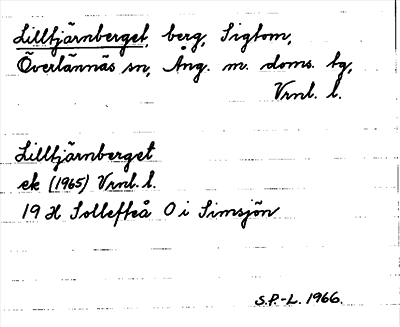 Lilltjärnberget, berg, Sigtom,
Överlännäs sn, Ång. m. doms. tg,
Vrnl. l.
Lilltjärnberget
ek (1965) Vrnl. l.
19 H Sollefteå O i Simsjön
S.P.-L. 1966.